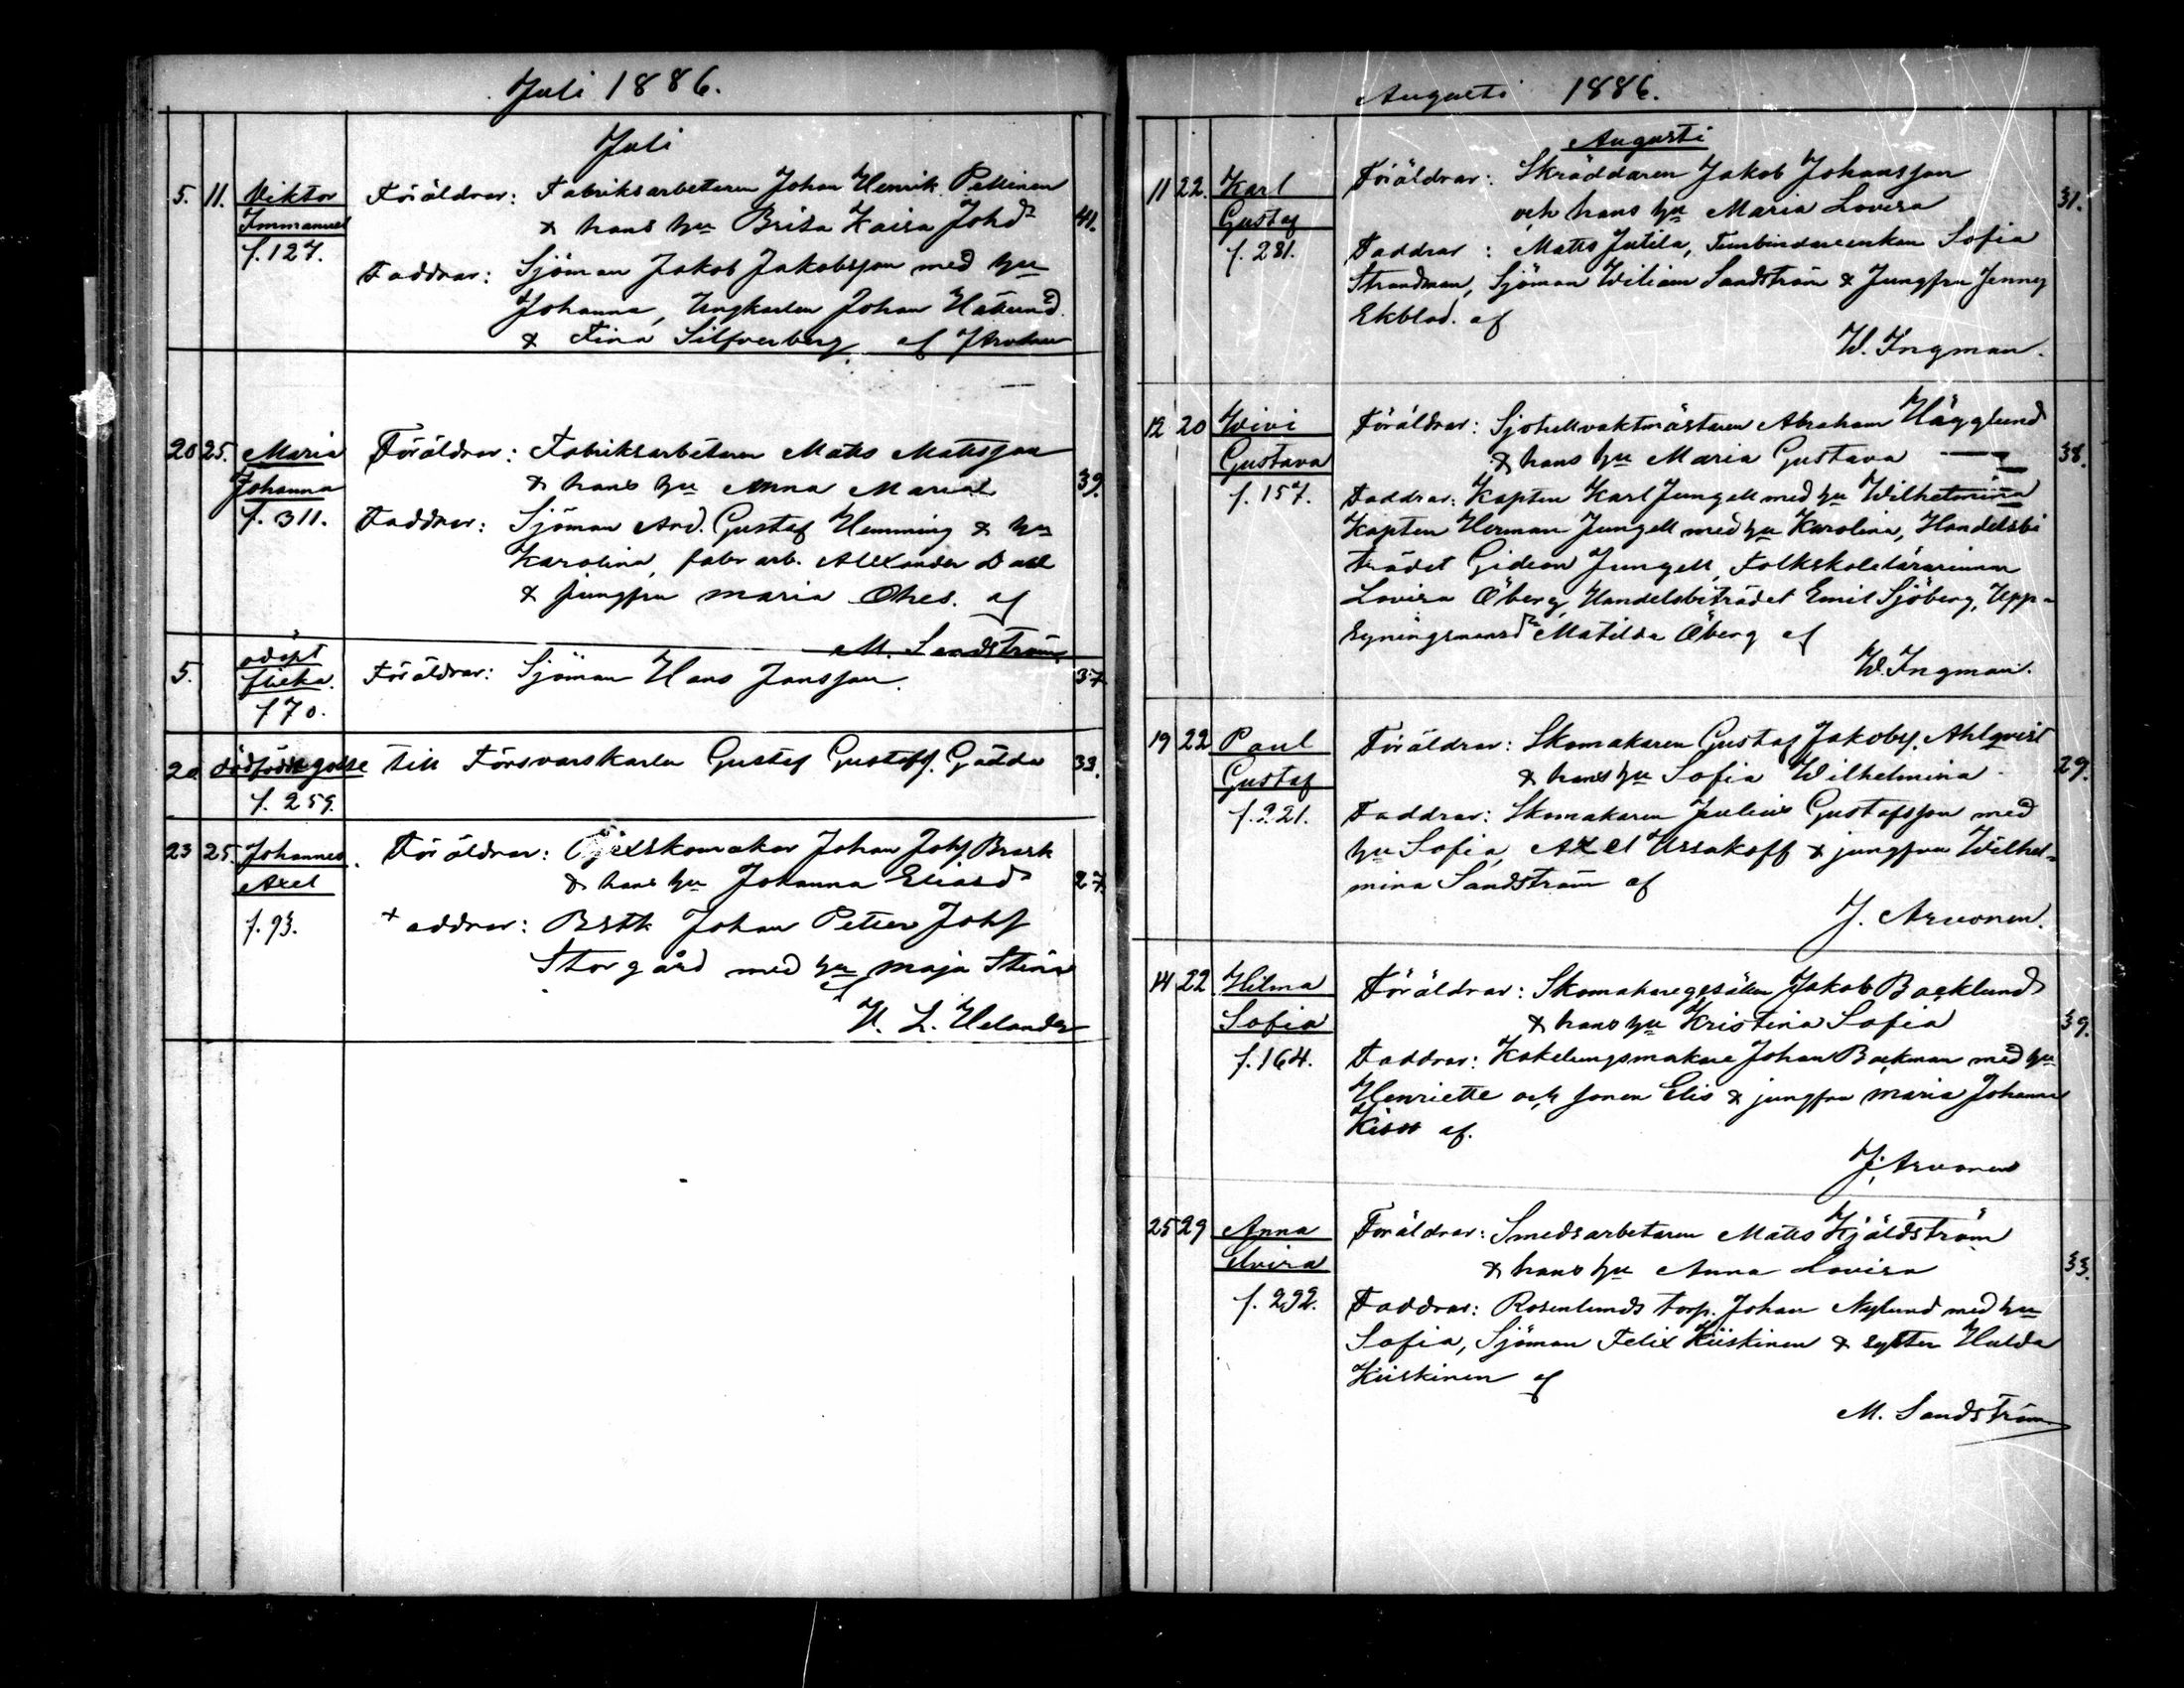 Juli 1886.
Juli
5. 11. Viktor Immanuel f. 127.
Föräldrar: Fabriksarbetaren Johan Henrik Pellinen
& hans hu Brita Kaisa Johdr 41.
Faddrar: Sjöman Jakob Jakobsson med hu
Johanna, Ungkarlen Johan
& Fina Silfverberg. af
20 25. Maria Johanna f. 311.
Föräldrar: Fabriksarbetaren Matts Mattsson
& hans hu Anna Maria 39.
Faddrar: Sjöman And. Gustaf Hemming & hu
Karolina, fabr arb. Alexander Dahl
& jungfru Maria Ohls. af
M. Sandström
5. odöpt flicka. f 70.
Föräldrar: Sjöman Hans Jansson. 37
20 dödfödd gosse f. 259.
till Försvarskarlen Gustaf Gustafss. Gädda 33.
23 25. Johannes Axel f. 93.
Föräldrar: Johan Johs. Brask
& hans hu Johanna Eliasdr 27.
Faddrar: Johan Petter Johs
Storgård med hu Maja Stina
af
H. L. Helander
Augusti 1886.
Augusti
11 22. Karl Gustaf f. 281.
Föräldrar: Skräddaren Jakob Johansson
och hans hu Maria Lovisa 31.
Faddrar: Matts Jutila, Sofia
Strandman, Sjöman Wiliam Sandström & Jungfru Jenny
Ekblad. af
W. Ingman.
12 20 Wivi Gustava f. 157.
Föräldrar: Sjötullvaktmästaren Abraham Hägglund
& hans hu Maria Gustava 38.
Faddrar: Kapten Karl Jungell med hu Wilhelmina
Kapten Herman Jungell med hu Karolina, Handelsbi
trädet Gideon Jungell, Folkskolelärarinnan
Lovisa Öberg, Handelsbiträdet Emil Sjöberg, Upp-
syningsmansdr Matilda Öberg af
W. Ingman.
19 22 Paul Gustaf f. 221.
Föräldrar: Skomakaren Gustaf Jakobs. Ahlqvist
& hans hu Sofia Wilhelmina 29.
Faddrar: Skomakaren Julius Gustafsson med
hu Sofia, Axel Ussakoff & jungfru Wilhel-
mina Sandström af
J. Arvonen.
14 22 Hilma Sofia f. 164.
Föräldrar: Skomakaregesällen Jakob Backlund
& hans hu Kristina Sofia 39.
Faddrar: Kakelungsmakare Johan Backman med hu
Henriette och sonen Elis & jungfru Maria Johanna
af.
J. Arvonen
25 29 Anna Elvira f. 292.
Föräldrar: Smedsarbetaren Matts Kjäldström
& hans hu Anna Lovisa 33.
Faddrar: Rosenlunds torp. Johan Nylund med hu
Sofia, Sjöman Felix Kiiskinen & syster Hulda
Kiiskinen af
M. Sandström